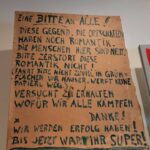 EINE BITTE AN ALLE!
DIESE GEGEND, DIE ORTSCHAFTEN
HABEN NOCH ROMANTIK.
DIE MENSCHEN HIER SIND NETT.
BITTE ZERSTÖRE DIESE
ROMANTIK NICHT!
FAHRT BITTE NICHT ZUVIEL IN GRUPPEN
VIEL WEG.
VERSUCHT ZU ERHALTEN
WOFÜR WIR ALLE KÄMPFEN
DANKE!
WIR WERDEN ERFOLG HABEN!
BIS JETZT WART IHR SUPER!